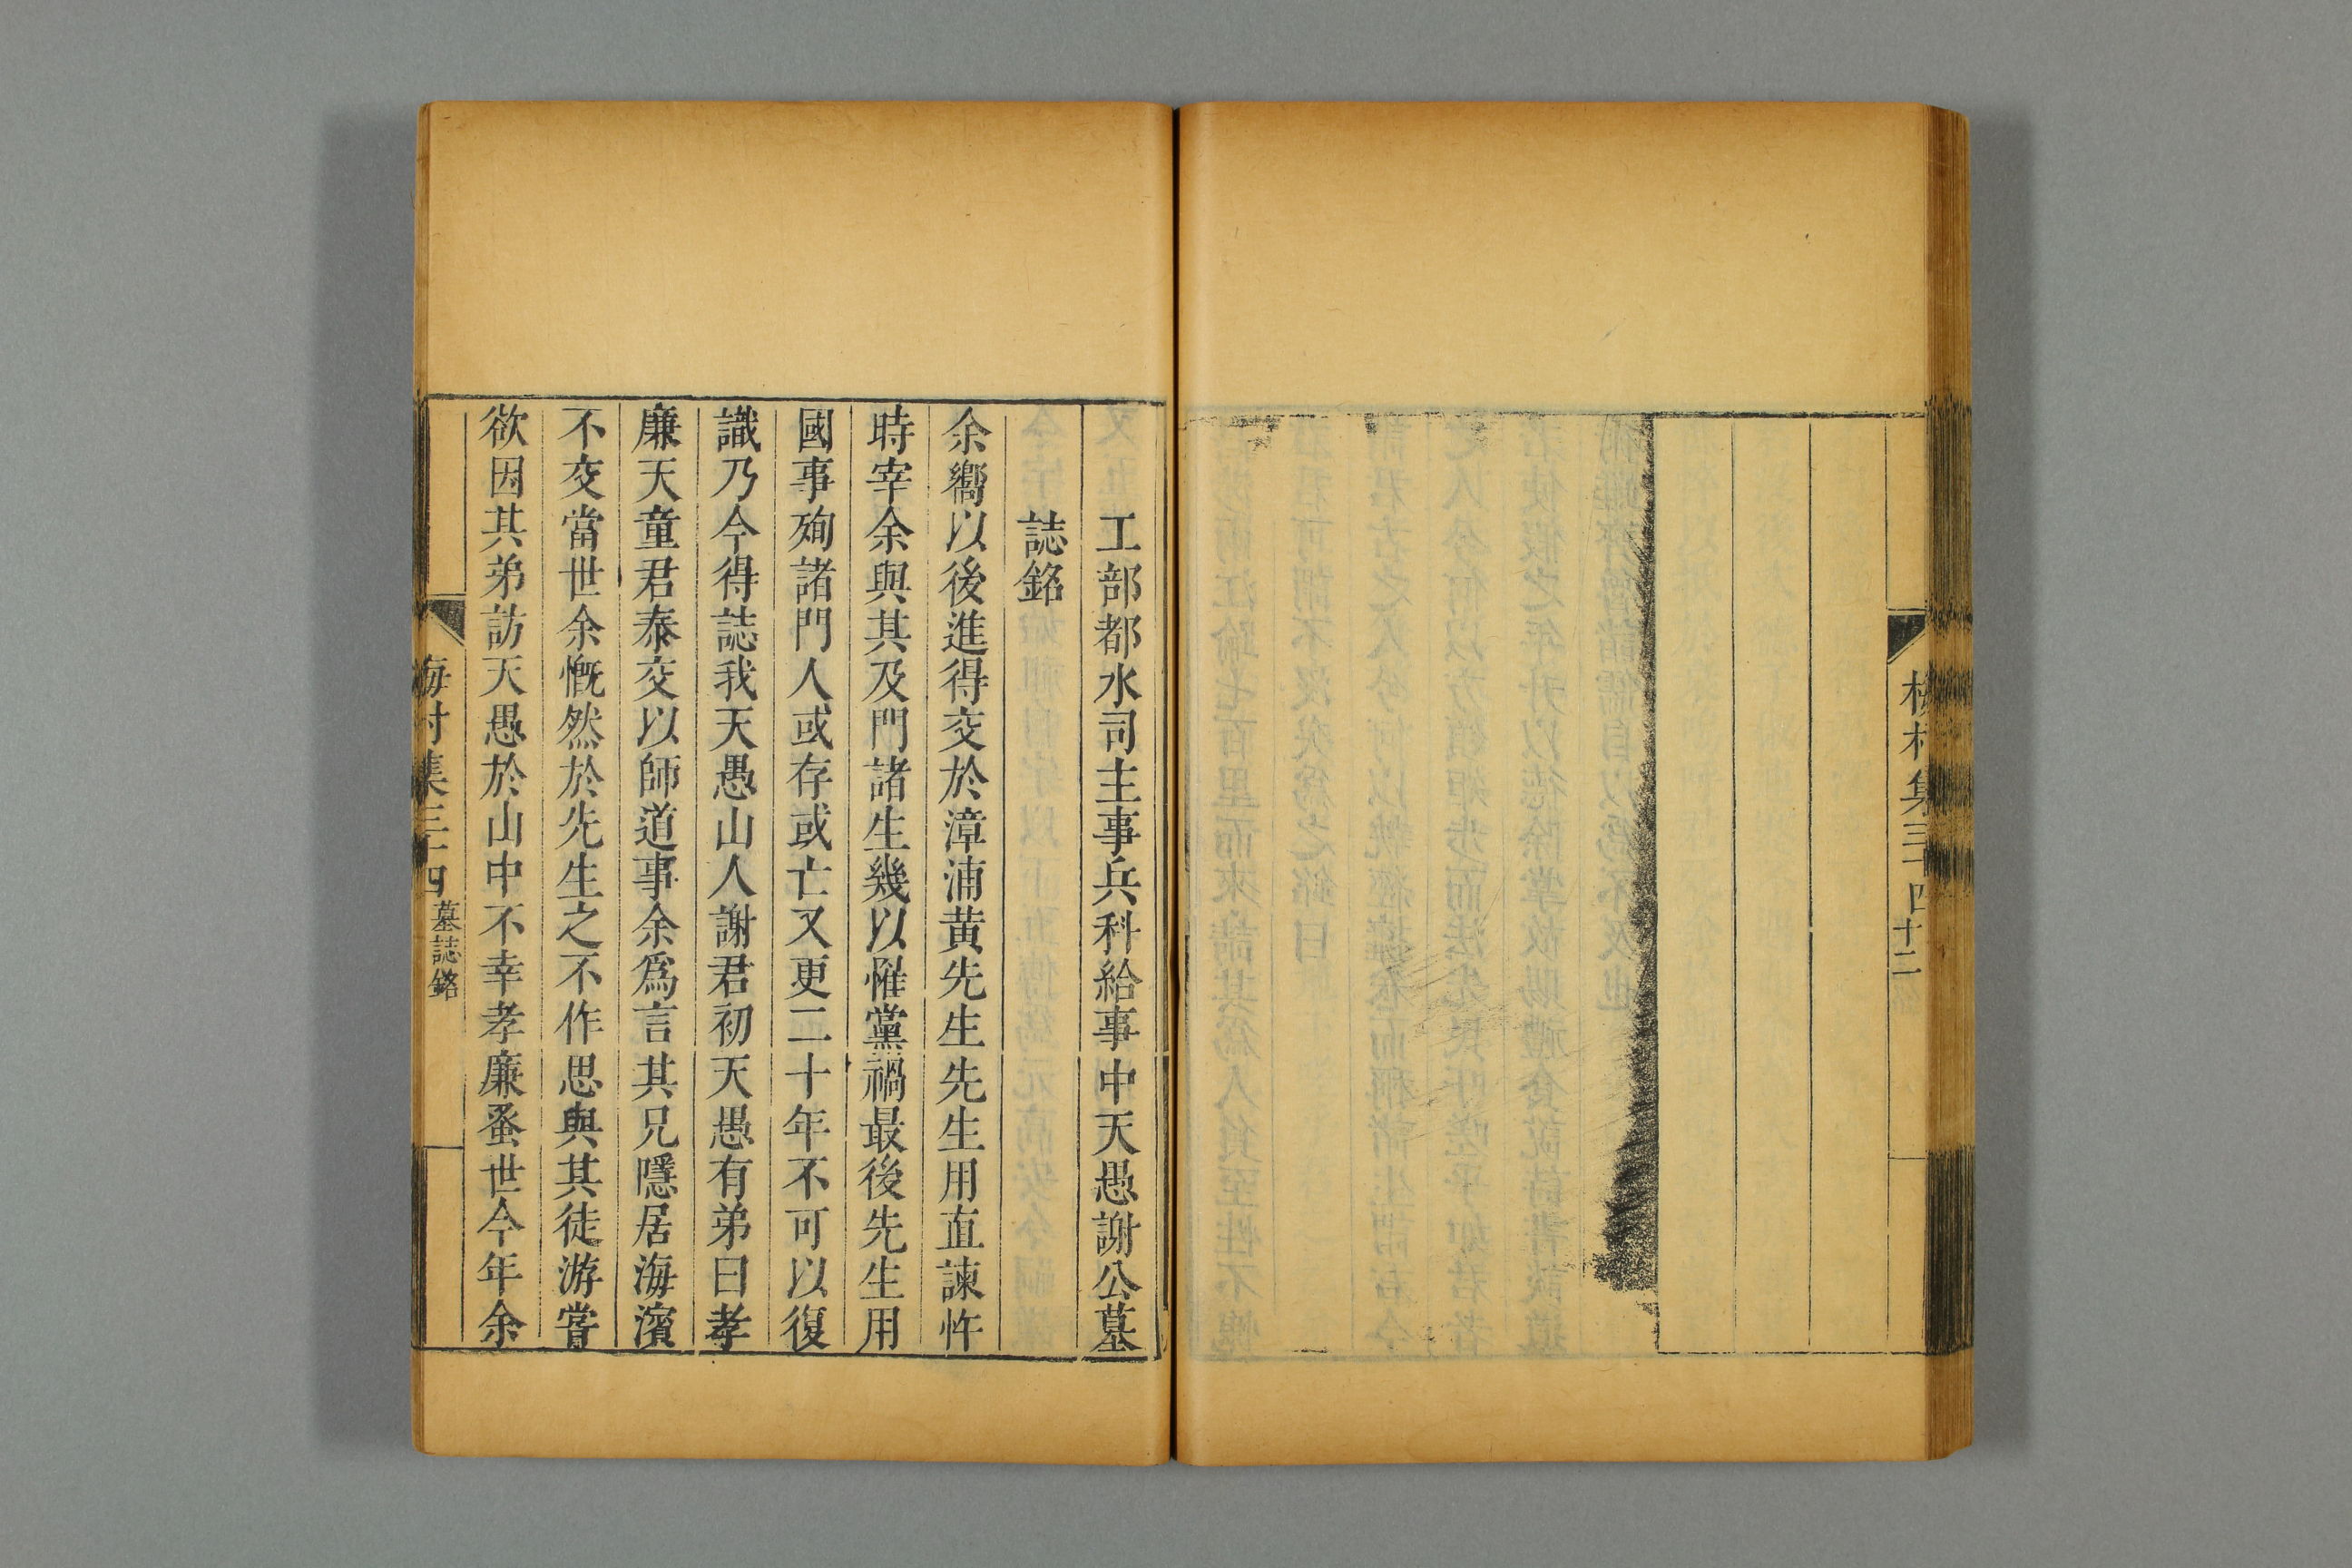 梅村集三十四 十二
工部都水司主事兵科給事中天愚謝公墓
誌銘
余嚮以後進得交於漳浦黄先生先生用直諫忤
時宰余與其及門諸生幾以惟黨禍最後先生用
國事殉諸門人或存或亡又更二十年不可以復
識乃今得誌我天愚山人謝君初天愚有弟曰孝
廉天童君泰交以師道事余爲言其兄隱居海濱
不交當世余慨然於先生之不作思與其徒游嘗
欲因其弟訪天愚於山中不幸孝廉蚤世今年余
梅村集三十四 墓誌銘